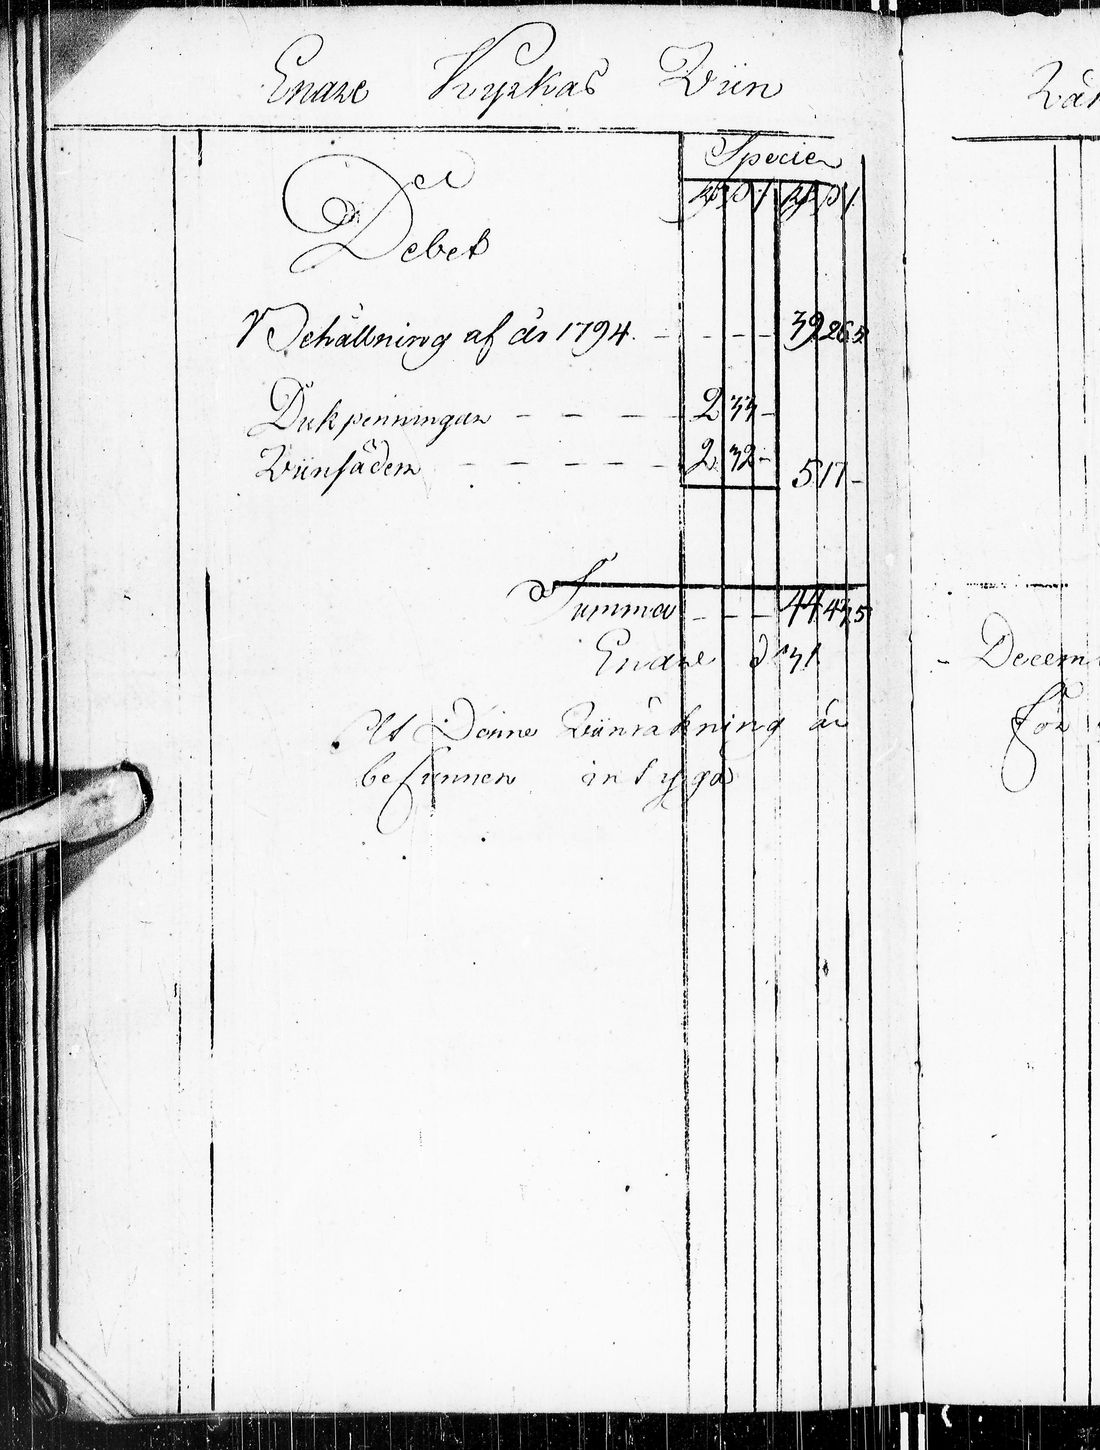 Enare Kyrkas Wiin
Specier
Debet
Behållning af år 1794. - - - - 39 26 5
Dukpenningar - - - - 2 33 -
Wiinsäden - - - - - 2 32 - 5 17 -
Summa - - - 44 43 5
Enare d 31
At Denne Wiinräkning är
befunnen intyga
Decem
för